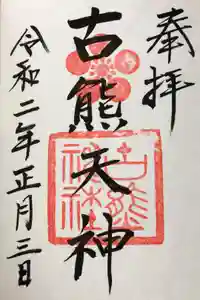 奉拝
古熊天神
令和二年正月三日